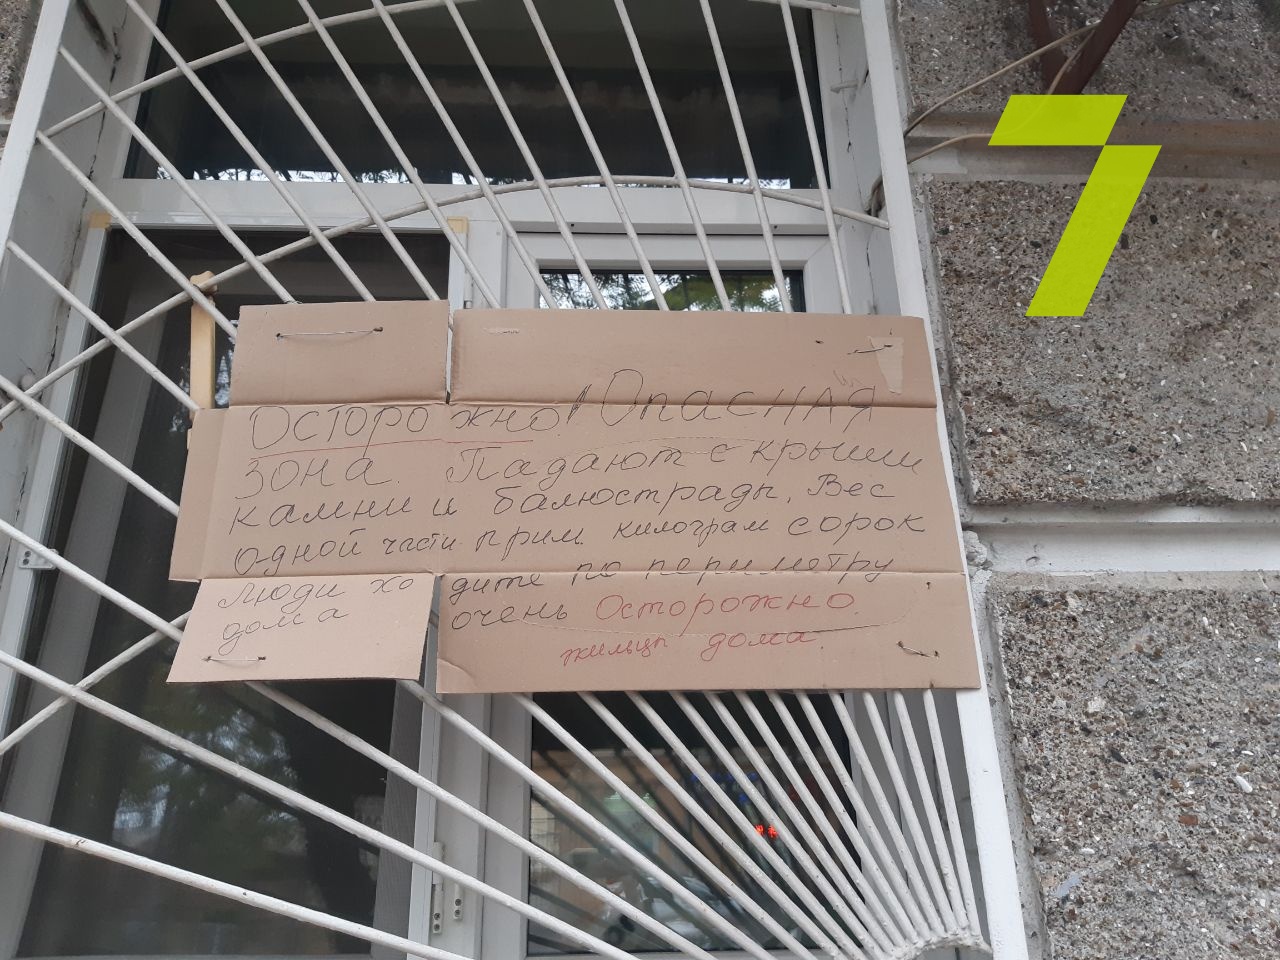 Осторожно! Опасная
зона. Падают с крыши
камни и балюстрады. Вес
одной части прим. килограм сорок
Люди ходите по периметру
дома очень Осторожно.
жильцы дома.
7